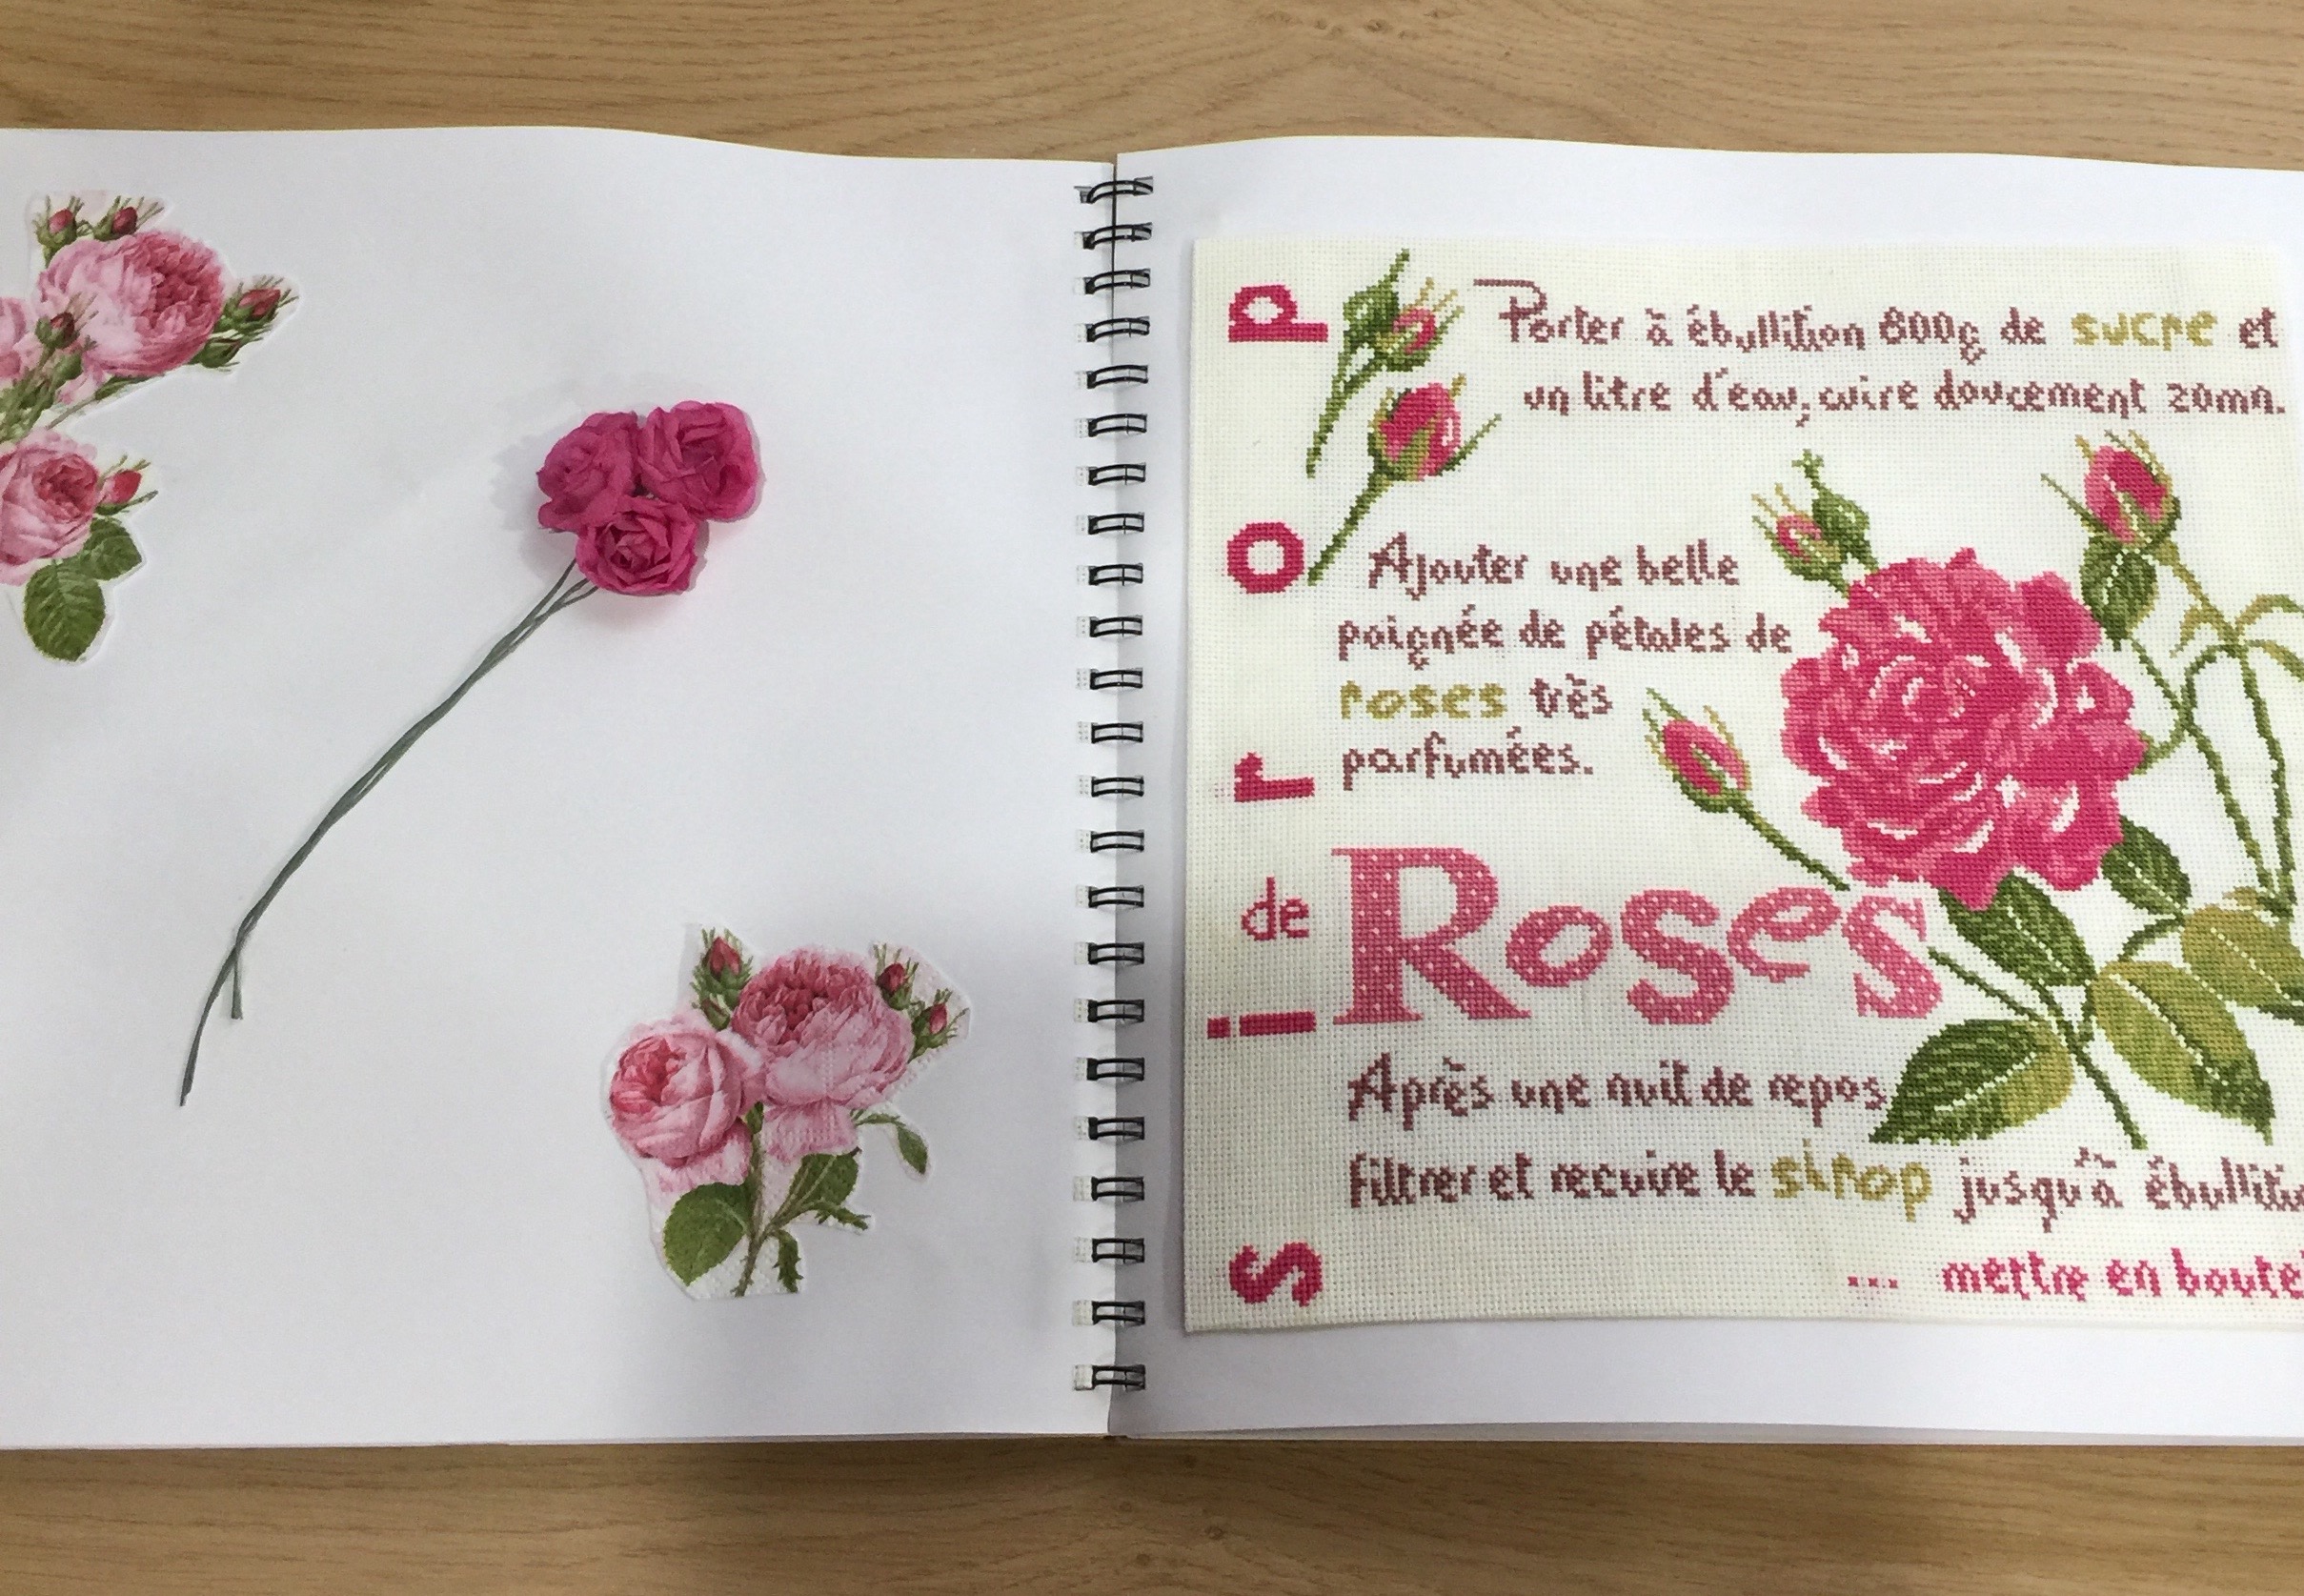 sirop
de Roses
Porter à ébullition 800g de sucre et
un litre d'eau, cuire doucement 20mn.
Ajouter une belle
poignée de pétales de
roses très
parfumées.
Après une nuit de repos
filtrer et recuire le sirop jusqu'à
... mettre en